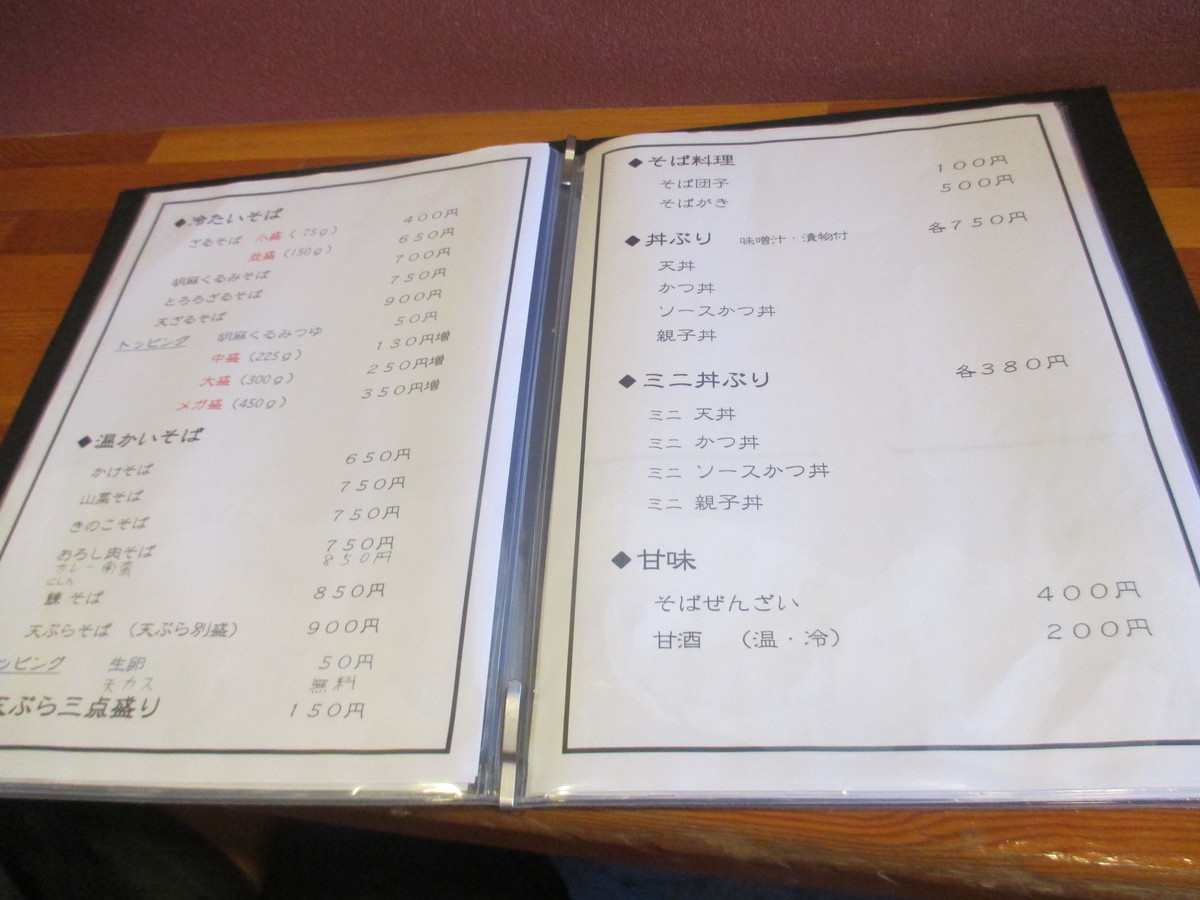 ◆冷たいそば
ざるそば 小盛(75g) 400円
並盛(150g) 650円
胡麻くるみそば 700円
とろろざるそば 750円
天ざるそば 900円
トッピング 胡麻くるみつゆ 50円
中盛(225g) 130円増
大盛(300g) 250円増
メガ盛(450g) 350円増
◆温かいそば
かけそば 650円
山菜そば 750円
きのこそば 750円
おろし肉そば 750円
カレー南蛮 850円
にしん
鰊そば 850円
天ぷらそば (天ぷら別盛) 900円
ッピング 生卵 50円
天カス 無料
天ぷら三点盛り 150円
◆そば料理
そば団子 100円
そばがき 500円
◆丼ぶり 味噌汁・漬物付 各750円
天丼
かつ丼
ソースかつ丼
親子丼
◆ミニ丼ぶり 各380円
ミニ 天丼
ミニ かつ丼
ミニ ソースかつ丼
ミニ 親子丼
◆甘味
そばぜんざい 400円
甘酒 (温・冷) 200円